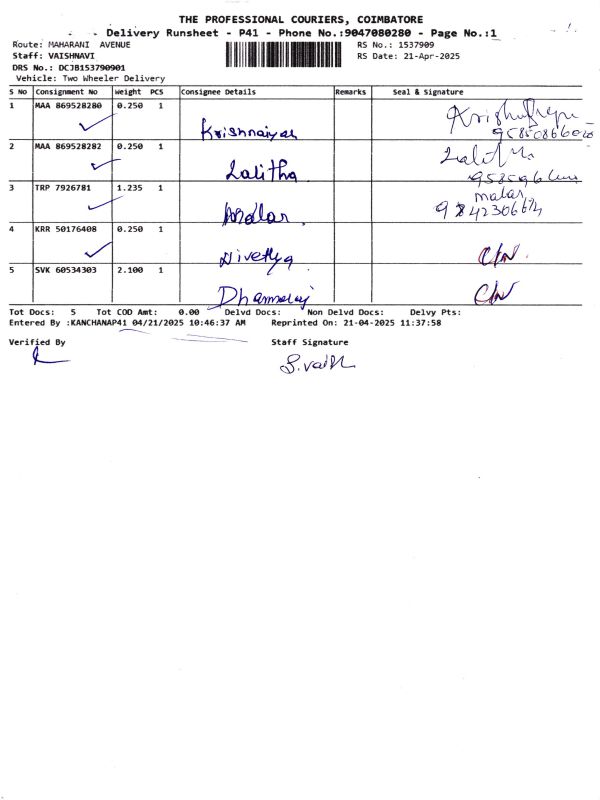 THE PROFESSIONAL COURIERS, COIMBATORE
Delivery Runsheet - P41 - Phone No.:9047080280 - Page No.:1
Route: MAHARANI AVENUE
RS No.: 1537909
Staff: VAISHNAVI
RS Date: 21-Apr-2025
DRS No.: DCJB153790901
Vehicle: Two Wheeler Delivery
S No Consignment No Weight PCS Consignee Details Remarks Seal & Signature
1 MAA 869528280 0.250 1 Krishnaiyar
2 MAA 869528282 0.250 1 Lalitha
3 TRP 7926781 1.235 1 Malar malar
4 KRR 50176408 0.250 1 Nivethya
5 SVK 60534303 2.100 1 Dhanaraj
Tot Docs: 5 Tot COD Amt: 0.00 Delvd Docs: Non Delvd Docs: Delvy Pts:
Entered By :KANCHANAP41 04/21/2025 10:46:37 AM Reprinted On: 21-04-2025 11:37:58
Verified By Staff Signature